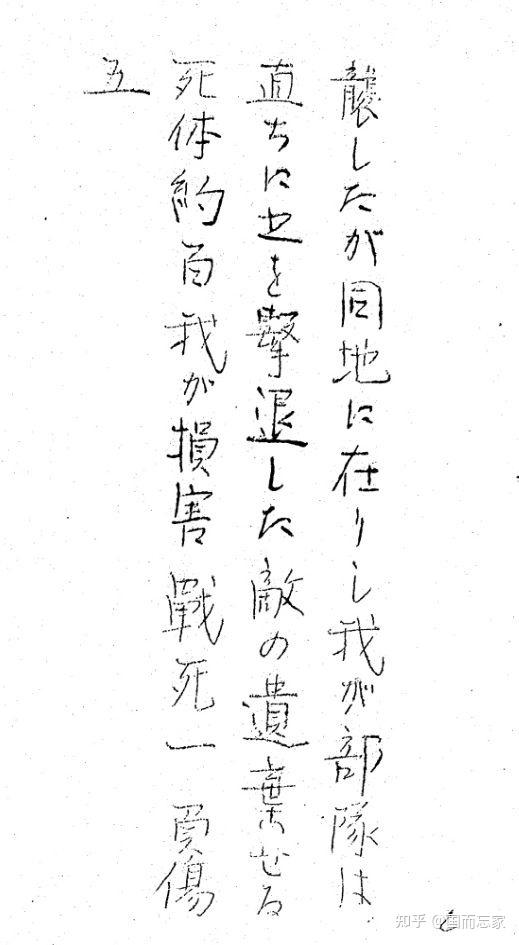 襲したが同地に在りし我が部隊は
直ちに之を撃退した敵の遺棄せる
死体約百我が損害戰死一負傷
五
知乎 @国而忘家